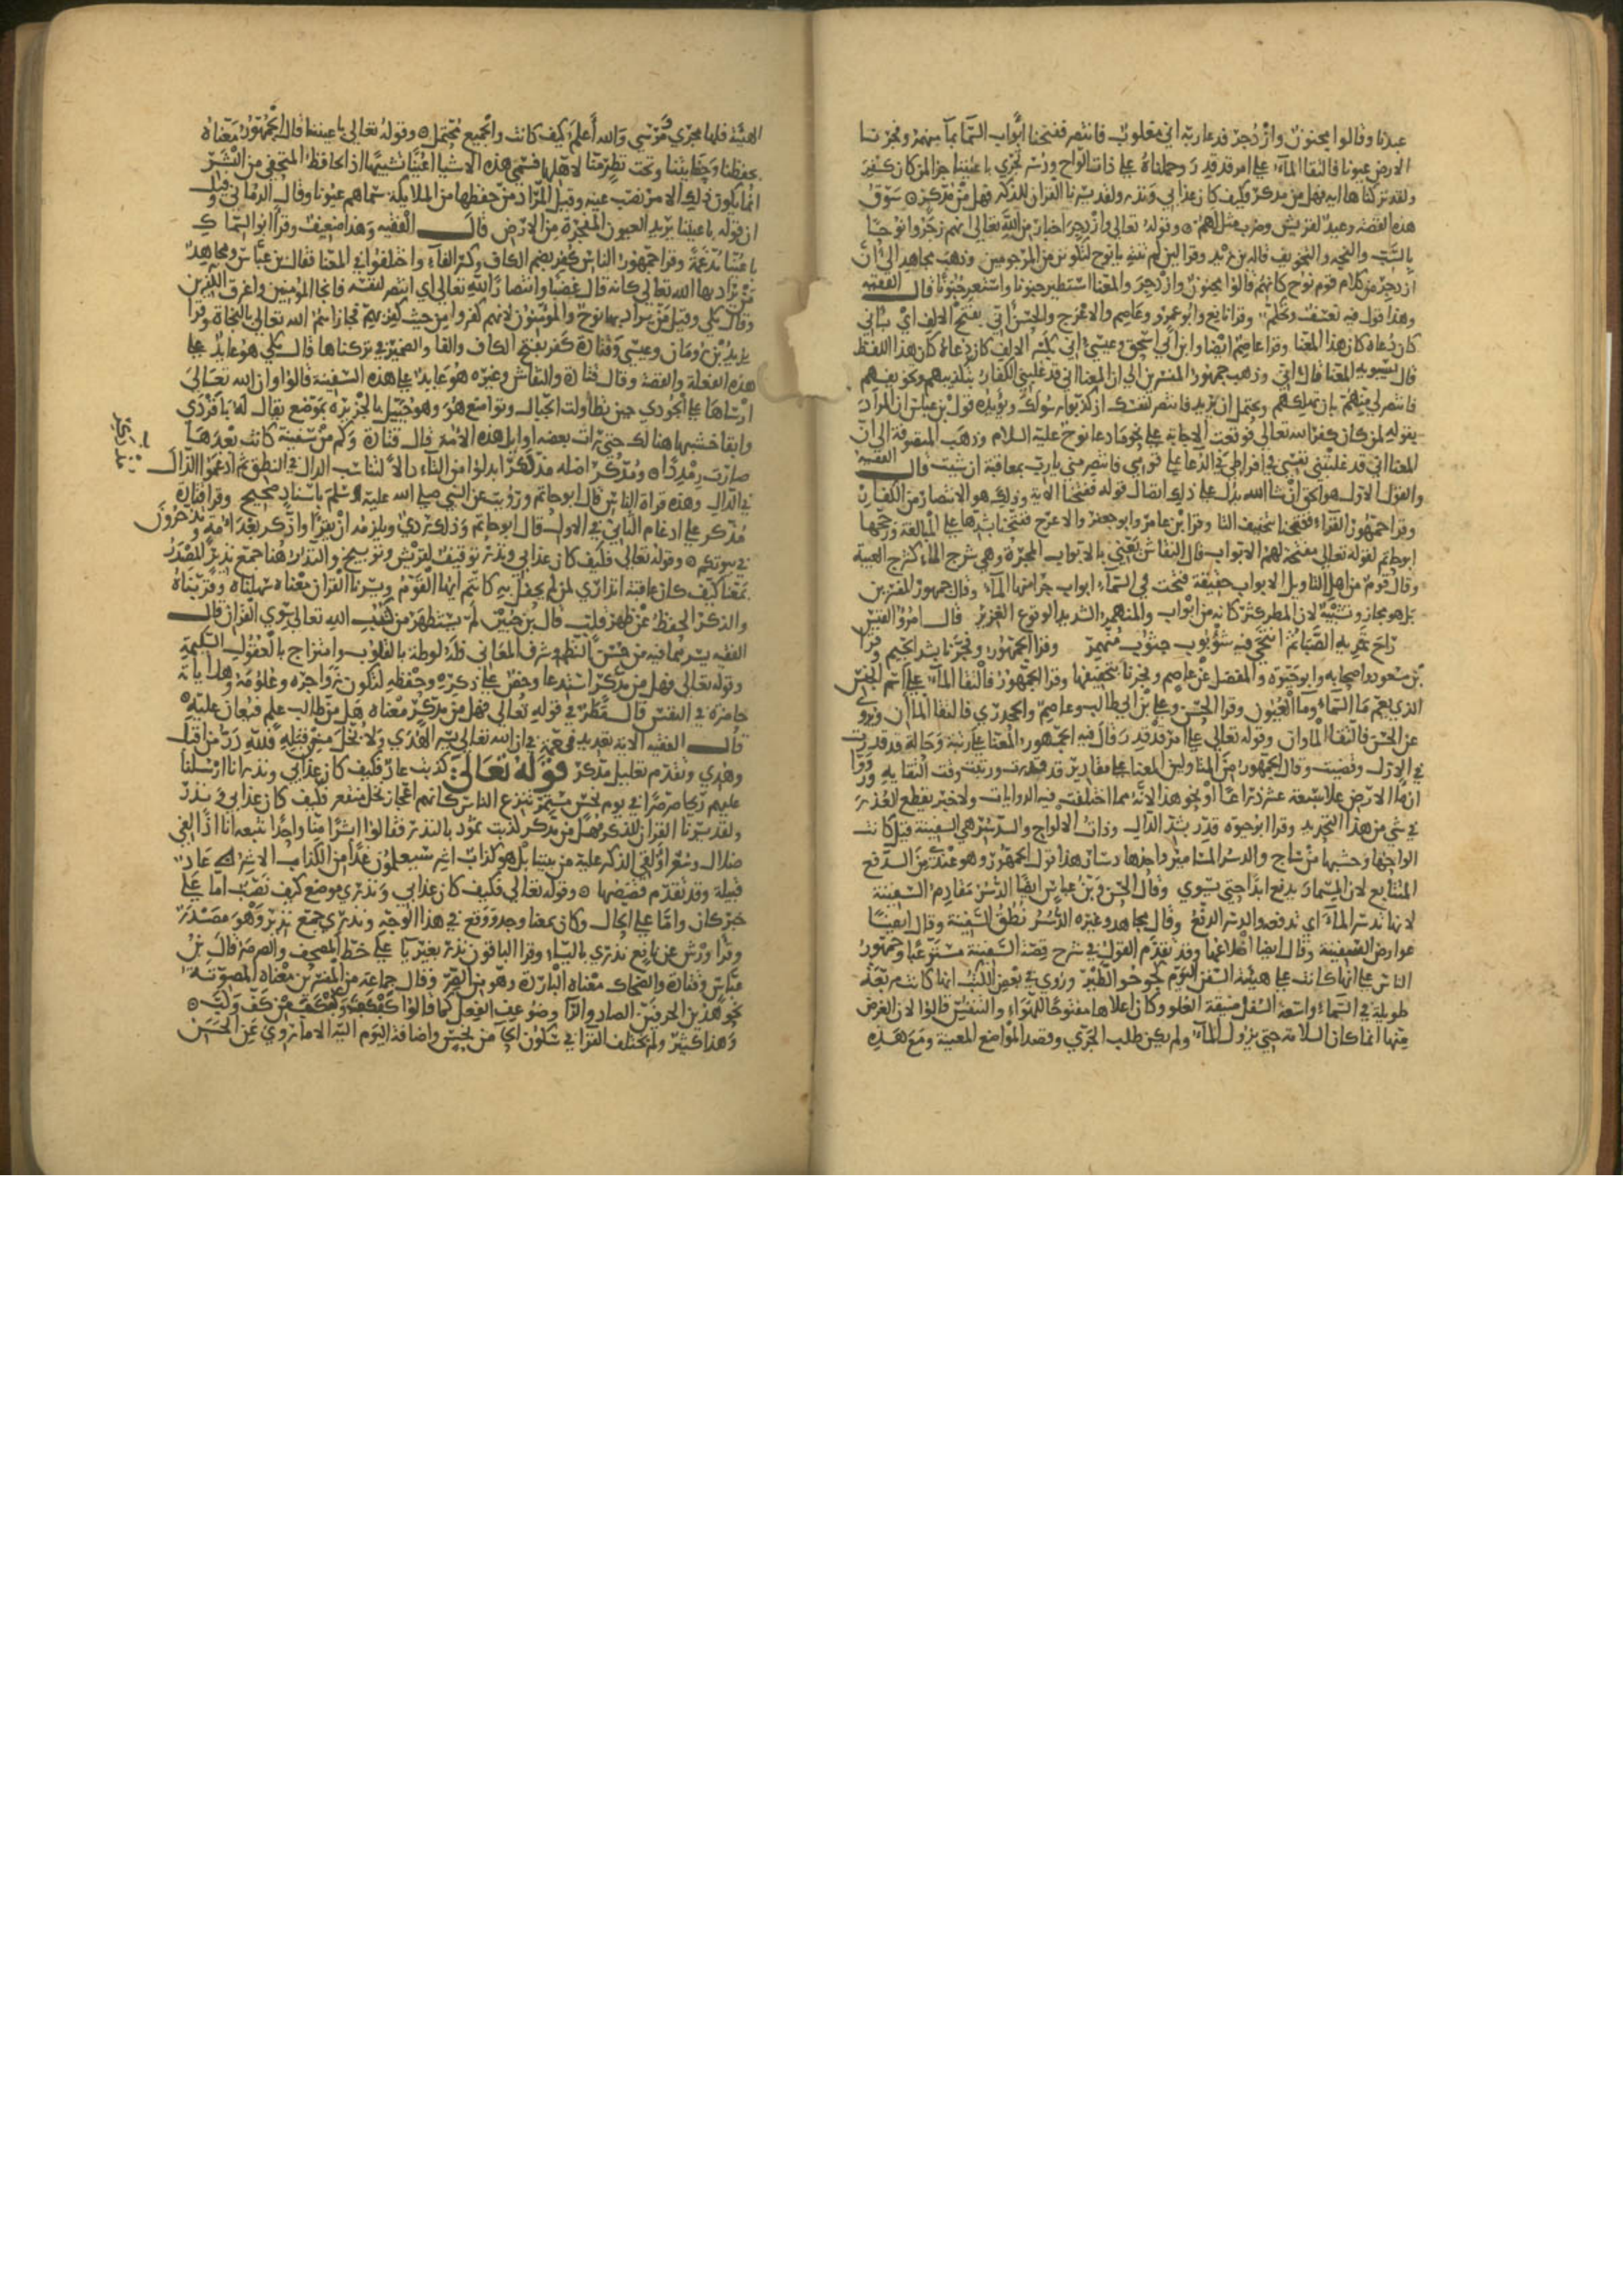 عبدنا وقالوا مجنون وازدجر فدعا ربه اني مغلوب فانتصر ففتحنا أبواب السما بما منهمر وفجرنا
الارض عيونا فالتقا الماء علي امر قد قدر وحملناه علي ذات الواح ودسر تجري باعيننا جزا لمن كان كفر
ولقد تركناها اية فهل من مدكر فكيف كان عذابي ونذر ولقد يسرنا القران للذكر فهل من مدكر ۞ سوق
هذه القصة وعيد لقريش وضرب مثل لهم ۞ وقوله تعالى وازدجر اخبار من الله تعالى انهم زجروا نوحا
بالسب والنجه والتخويف قاله بن زيد وقرا لين لم تنته يا نوح لتكونن من المرجومين وذهب مجاهد الي أن
ازدجر من كلام قوم نوح كانهم قالوا مجنون وازدجر والمعنا استطير جنونا واستعر جنونا قال الفقيه
وهذا قول فيه تعسف وتحكم وقرا نافع وابو عمرو وعاصم والاعرج والحسن أني بفتح الالف اي باني
كان دعاه كان هذا المعنا وقرا عاصم ايضا وابن ابي اسحق وعيسي اني بكسر الالف كان دعاه كان هذا اللفظ
قال سيبويه المعنا قال اني وذهب جمهور المفسرين الي ان المعنا اني قد غلبني الكفار بتكذيبهم وتخويفهم
فانتصر لي منهم بان تهلكهم ويحتمل ان يريد فانتصر لنفسك اذ كذبوا رسولك ويؤيده قول بن عباس ان المراد
بقوله لمن كان كفر الله تعالى فوقعت الاجابة علي نحو ما دعا نوح عليه السلام وذهب المتصوفة الي ان
المعنا اني قد غلبتني نفسي في افراطي في الدعا علي قومي فانتصر مني يا رب بمعاقبة ان شيت قال الفقيه
والقول الاول هو الحق ان شا الله يدل علي ذلك اتصال قوله ففتحنا الاية وذلك هو الانتصار من الكفار
وقرا جمهور القراء ففتحنا بتخفيف التا وقرا بن عامر وابو جعفر والاعرج ففتحنا بشدها علي المبالغة ورجحها
ابو حاتم لقوله تعالى مفتحة لهم الابواب قال النقاش يعني بالابواب المجرة وهي شرج السماء كشرج العيبة
وقال قوم من اهل التاويل الابواب حقيقة فتحت في السماء ابواب جرا منها الماء وقال جمهور المفسرين
بل هو مجاز وتشبيه لان المطر كثر كانه من ابواب والمنهمر الشديد الوقوع الغزير قال امرؤ القيس
راح تمريه الصبا ثم انتحي فيه شؤبوب جنوب منهمر وقرا الجمهور وفجرنا بشد الجيم وقرا
بن مسعود واصحابه وابو حيوة والمفضل عن عاصم وفجرنا بتخفيفها وقرا الجمهور فالتقا الماء علي اسم الجنس
الذي يعم ما السماء وما العيون وقرا الحسن وعلي بن ابي طالب وعاصم والجحدري فالتقا الماان ويروي
عن الحسن فالتقا الماوان وقوله تعالى علي امر قد قدر قال فيه الجمهور المعنا علي رتبة وحالة قد قدرت
في الازل وقضيت وقال جمهور من المتاولين المعنا علي مقادير قد قدرت ورتبت وقت التقايه ورووا
ان ما الارض علا سبعة عشر ذراعا او نحو هذا لانه مما اختلفت فيه الروايات ولا خبر يقطع العذر
في شي من هذا التحديد وقرا ابو حيوه قدر بشد الدال وذات الالواح والدسر هي السفينة قيل كانت
الواحها وخشبها من ساج والدسر المسامير واحدها دسار هذا قول الجمهور وهو عندي من الدفع
المتتابع لان المسمار يدفع ابدا حتي يستوي وقال الحسن وبن عباس ايضا الدسر مقادم السفينة
لانها تدسر الماء اي تدفعه والدسر الدفع وقال مجاهد وغيره الدسر نطق السفينة وقال ايضا
عوارض السفينة وقال ايضا اضلاعها وقد تقدم القول في شرح قصة السفينة مستوعبا وجمهور
الناس علي انها كانت علي هيئة السفن اليوم كجؤجؤ الطير وروي في بعض الكتب انها كانت مربعة
طويلة في السماء واسعة السفل ضيقة العلو وكان اعلاها مفتوحا للهواء والتنفس قالوا لان الغرض
منها انما كان السلامة حتي يزول الماء ولم يكن طلب الجري وقصد المواضع المعينة ومع هذه
الهيئة فلها مجري ومرسي والله أعلم كيف كانت والجميع محتمل ۞ وقوله تعالى باعيننا قال الجمهور معناه
بحفظنا وحفايتنا وتحت نظر منا لاهلها فسمي هذه الاشيا اعينا تشبيها اذ الحافظ المتحفي من البشر
انما يكون ذلك الامر نصب عينه وقيل المراد من حفظها من الملايكة سماهم عيونا وقال الرماني قيل
ان قوله باعيننا يريد العيون المفجرة من الارض قال الفقيه وهذا ضعيف وقرا ابو السماك
باعينا مدغمة وقرا جمهور الناس كفر بضم الكاف وكسر الفاء واختلفوا في المعنا فقال بن عباس ومجاهد
من يراد بها الله تعالى كانه قال غضبا وانتصارا لله تعالى اي انتصر لنفسه فانجا المومنين واغرق الكافرين
وقال مكي وقيل من يراد بها نوح والمومنون لانهم كفروا من حيث كفر بهم فجازاهم الله تعالى بالنجاة وقرا
يزيد بن رومان وعيسي وقتادة كفر بفتح الكاف والفا والضمير في تركناها قال مكي هو عايد علي
هذه الفعلة والقصة وقال قتادة والنقاش وغيره هو عايد علي هذه السفينة قالوا وان الله تعالى
ارساها علي الجودي حين تطاولت الجبال وتواضع هو وهو جبيل بالجزيرة بموضع يقال له باقردي
وابقا خشبها هنالك حتي رات بعضه اوايل هذه الامة قال قتادة وكم من سفينة كانت بعدها
صارت رمددا ۞ ومدكر اصله مذتكر ابدلوا من التاء دالا لتناسب الدال في النطق ثم ادغموا الذال
في الدال وهذه قراة الناس قال ابو حاتم ورويت عن النبي صلي الله عليه وسلم باسناد صحيح وقرا قتادة
مذكر علي ادغام الثاني في الاول قال ابو حاتم وذلك ردي ويلزمه ان يقرا واذكر بعد امة وتذخرون
في بيوتكم ۞ وقوله تعالى فكيف كان عذابي ونذر توقيف لقريش وتوبيخ والنذر هنا جمع نذير المصدر
بمعنا كيف كان عاقبة انذاري لمن لم يحفل به كانتم ايها القوم ويسرنا القران معناه سهلناه وقربناه
والذكر الحفظ عن ظهر قلب قال بن جبير لم يستظهر من كتب الله تعالى سوي القران قال
الفقيه يسر بما فيه من حسن النظم وشرف المعاني فله لوطة بالقلوب وامتزاج بالعقول السليمة
وقوله تعالى فهل من مدكر استدعا وحض علي ذكره وحفظه لتكون زواجره وعلومه وهداياته
حاضرة في النفس قال مطر في قوله تعالى فهل من مدكر معناه هل من طالب علم فيعان عليه ۞
قال الفقيه الاية تعديد نعمة في ان الله تعالى يسر الهدي ولا بخل من قبله فلله در من قبل
وهدي وتقدم تعليل مدكر قوله تعالى كذبت عاد فكيف كان عذابي ونذر انا ارسلنا
عليهم ريحا صرصرا في يوم نحس مستمر تنزع الناس كانهم اعجاز نخل منقعر فكيف كان عذابي ونذر
ولقد يسرنا القران للذكر فهل من مدكر كذبت ثمود بالنذر فقالوا ابشرا منا واحدا نتبعه انا اذا لفي
ضلال وسعر اؤلقي الذكر عليه من بيننا بل هو كذاب اشر سيعلمون غدا من الكذاب الاشر عاد
قبيلة وقد تقدم قصصها ۞ وقوله تعالى فكيف كان عذابي ونذر موضع كيف نصب اما علي
خبر كان واما علي الحال وكان بمعنا وجد ووقع في هذا الوجه ونذر جمع نذير وهو مصدر
وقرا ورش عن نافع نذري بالياء وقرا الباقون نذر بغير يا علي خط المصحف والصرصر قال بن
عباس وقتادة والضحاك معناه الباردة وهو من الصر وقال جماعة من المفسرين معناه المصوتة
نحو هذين الحرفين الصاد والرا وضوعف الفعل كما قالوا كفكف وكبكب من كف وكب ۞
وهذا كثير ولم يختلف القرا في سكون الحا من نحس واضافة اليوم اليه الا ما روي عن الحسن